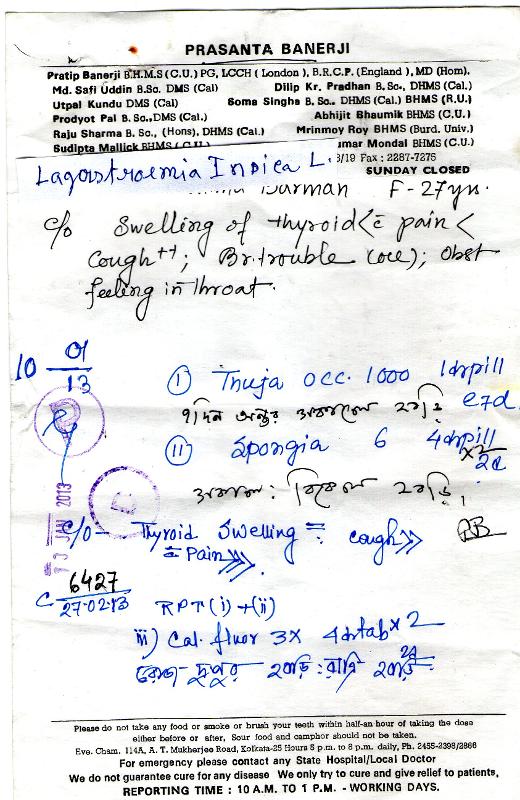 PRASANTA BANERJI
Pratip Banerji B.H.M.S (C.U.) PG, LCCH ( London ), B.R.C.P. (England ), MD (Hom).
Md. Safi Uddin B.Sc. DMS (Cal) Dilip Kr. Pradhan B. Sc., DHMS (Cal.)
Utpal Kundu DMS (Cal) Soma Singha B. Sc.. DHMS (Cal.) BHMS (R.U.)
Prodyot Pal B. Sc., DMS (Cal.) Abhijit Bhaumik BHMS (C.U.)
Raju Sharma B. Sc., (Hons), DHMS (Cal.) Mrinmoy Roy BHMS (Burd. Univ.)
Sudipta Mallick BHMS (C.U.) umar Mondal BHMS (C.U.)
3/19 Fax : 2287-7276
Lagerstroemia Indica L.
SUNDAY CLOSED
Burman F - 27yrs.
c/o Swelling of thyroid < c̄ pain <
Cough++; Br. trouble (occ); Obst
feeling in throat.
10 01
13
(I) Thuja occ. 1000 1drpill
৭দিন অন্তর সকালে ২বড়ি e7d.
(II) Spongia 6 4drpill
x2
2d
সকাল : বিকেল ২বড়ি,
13 JAN 2013
c/o - Thyroid Swelling = : cough >>
c̄ Pain >>>.
RB
C 6427
27-02-13 RPT (i) + (ii)
iii) Cal. fluor 3X 4drtab x 2
2d
রোজ - দুপুর ২বড়ি : রাত্রি ২বড়ি
Please do not take any food or smoke or brush your teeth within half-an hour of taking the dose
either before or after, Sour food and camphor should not be taken.
Eve. Cham. 114A, A. T. Mukherjee Road, Kolkata-25 Hours 5 p.m. to 8 p.m. daily, Ph. 2455-2398/2866
For emergency please contact any State Hospital/Local Doctor
We do not guarantee cure for any disease We only try to cure and give relief to patients,
REPORTING TIME : 10 A.M. TO 1 P.M. - WORKING DAYS.